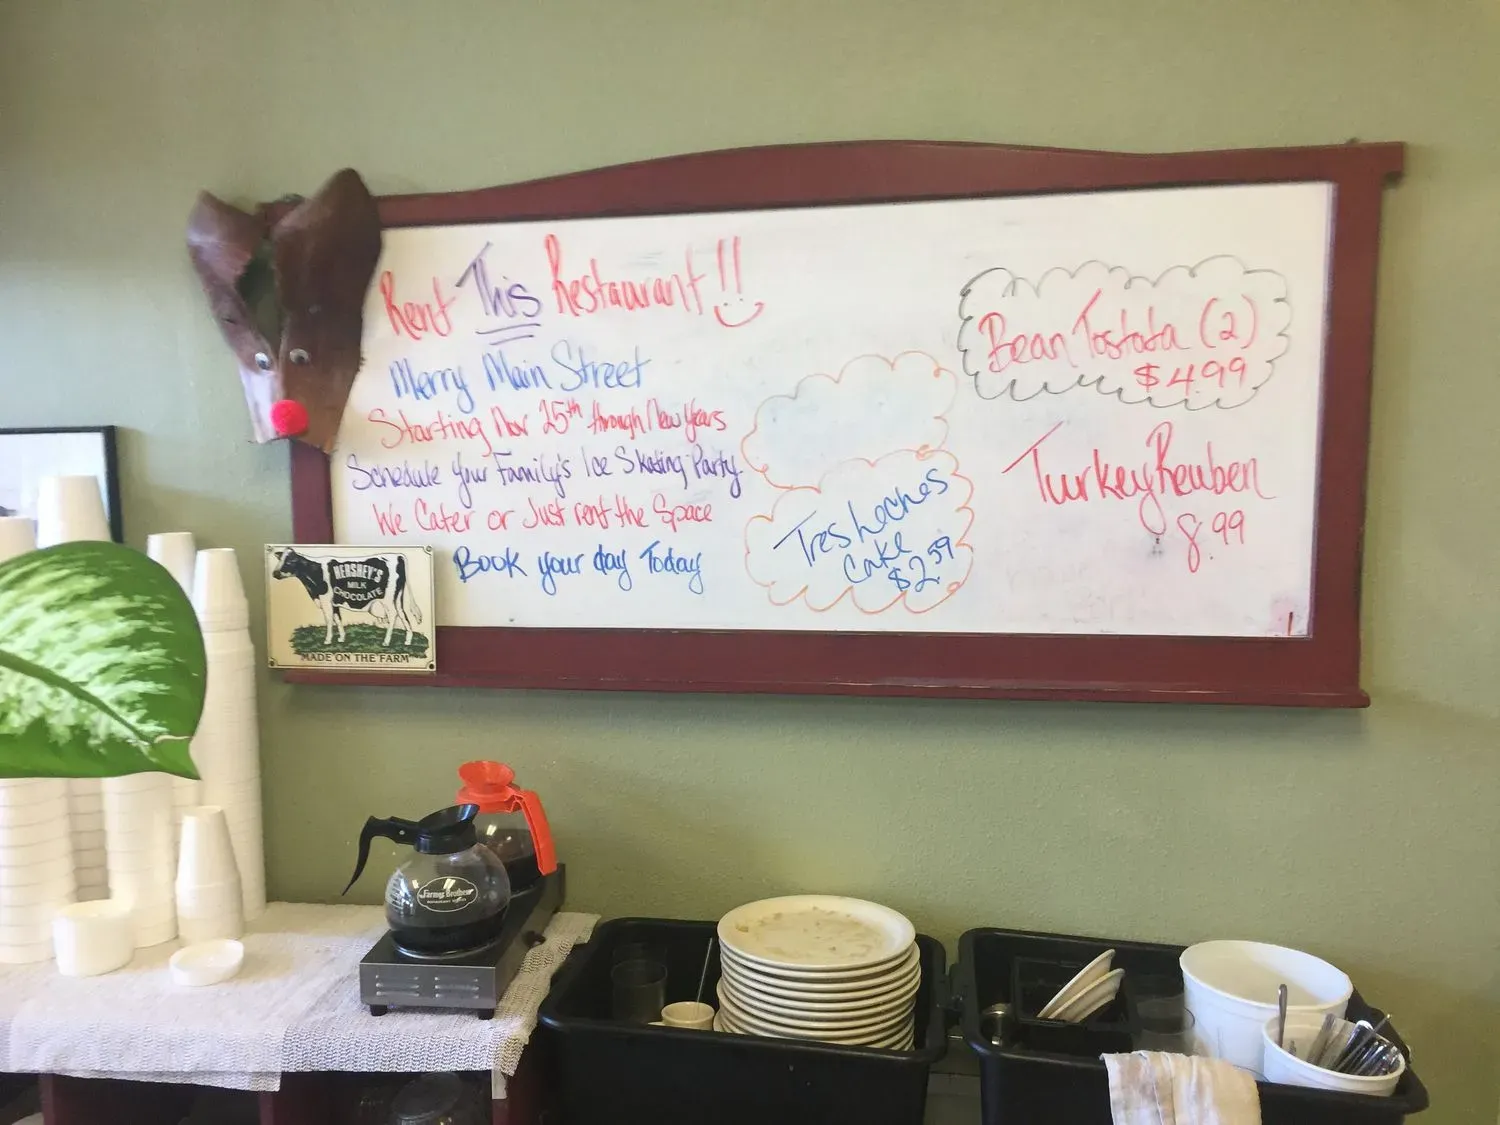 Rent This Restaurant!!
Merry Main Street
Starting Nov 25th through New Years
Schedule your Family's Ice Skating Party.
We Cater or Just rent the Space
Book your day Today
Tres Leches
Cake
$2.59
Bean Tostata (2)
$4.99
Turkey Reuben
8.99
HERSHEY'S
MILK
CHOCOLATE
"MADE ON THE FARM"
Farmer Brothers